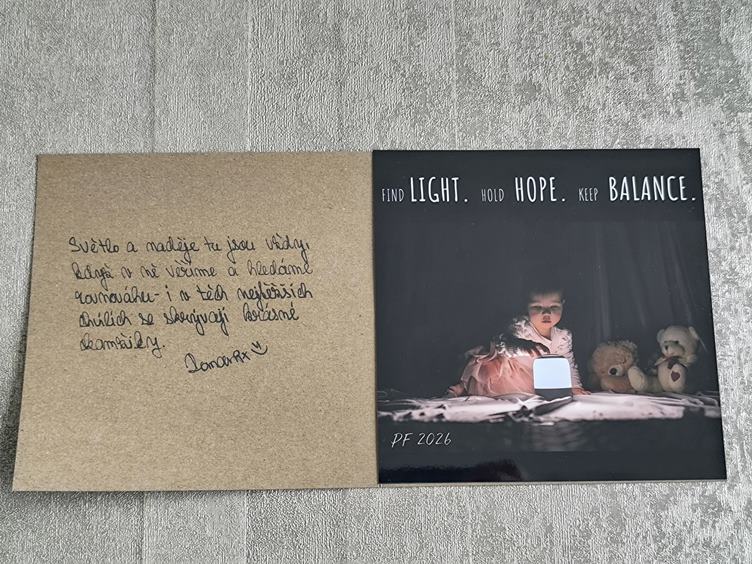 Světlo a naděje tu jsou vždy,
když v ně věříme a hledáme
rovnováhu - i v těch nejtěžších
chvílích se skrývají krásné
okamžiky.
FIND LIGHT. HOLD HOPE. KEEP BALANCE.
PF 2026